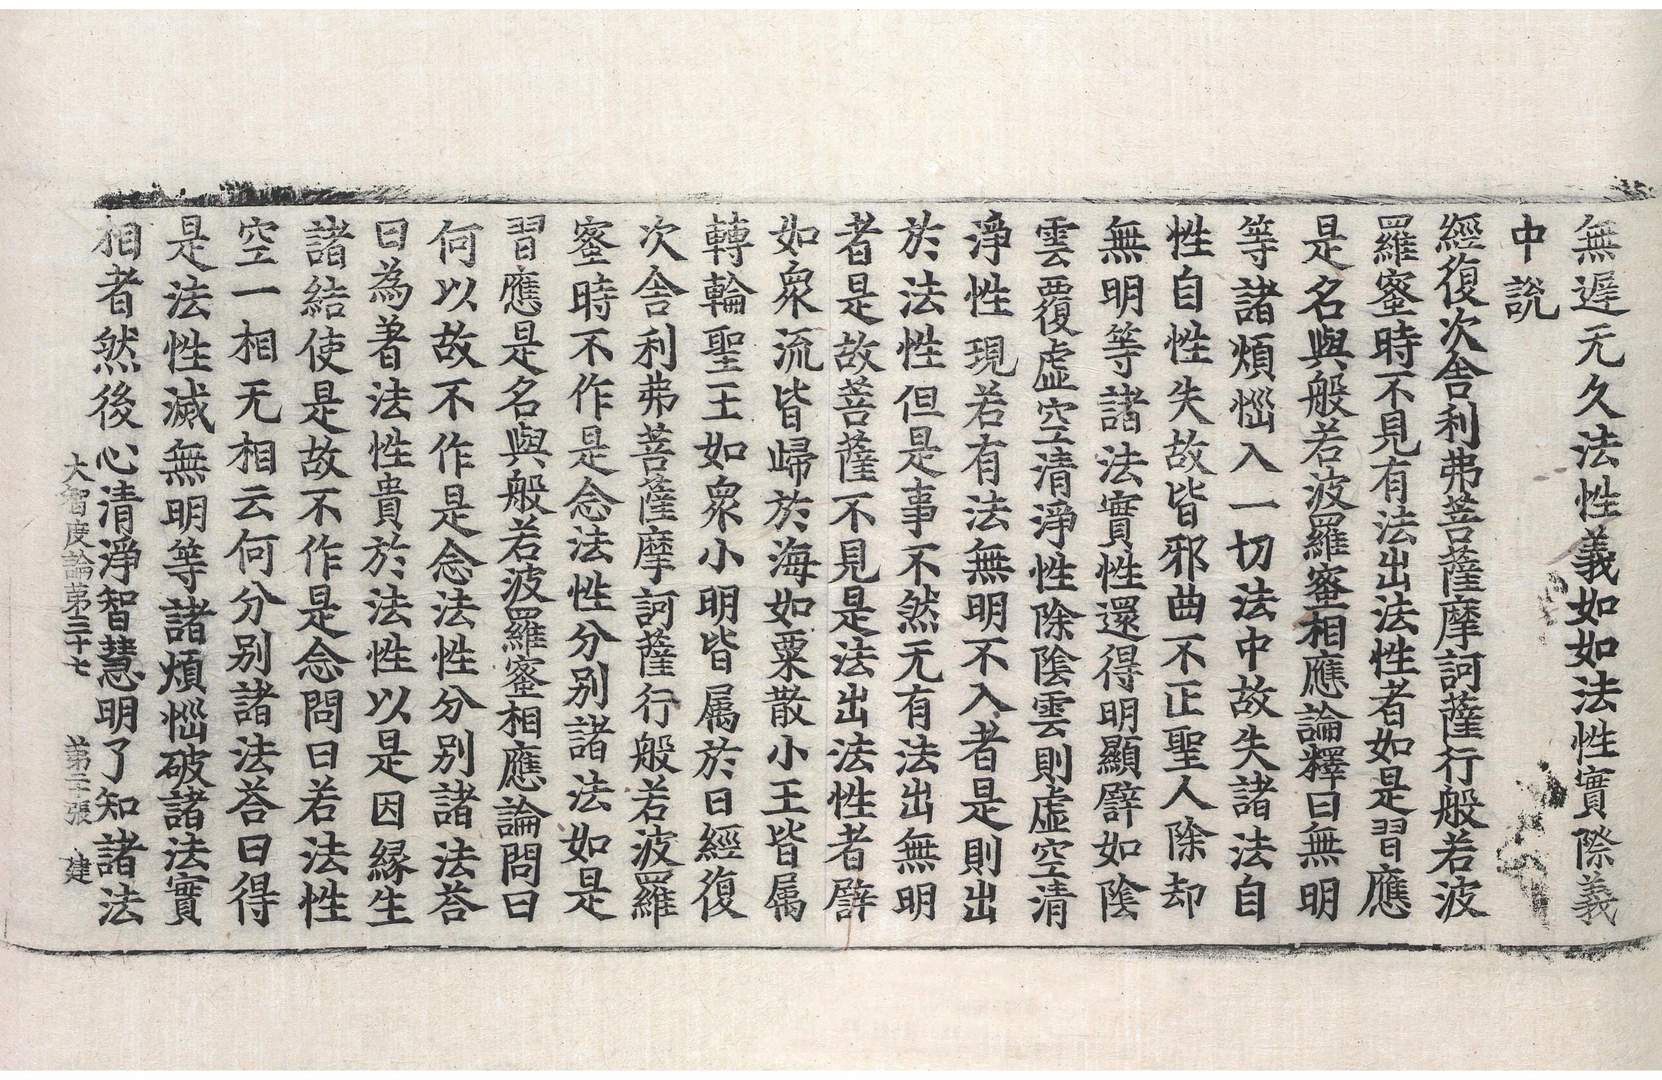 無遲无久法性義如如法性實際義
中說
經復次舍利弗菩薩摩訶薩行般若波
羅蜜時不見有法出法性者如是習應
是名與般若波羅蜜相應論釋曰無明
等諸煩惱入一切法中故失諸法自
性自性失故皆邪曲不正聖人除却
無明等諸法實性還得明顯譬如陰
雲覆虛空清淨性除陰雲則虛空清
淨性現若有法無明不入者是則出
於法性但是事不然无有法出無明
者是故菩薩不見是法出法性者譬
如衆流皆歸於海如粟散小王皆属
轉輪聖王如衆小明皆属於日經復
次舍利弗菩薩摩訶薩行般若波羅
蜜時不作是念法性分別諸法如是
習應是名與般若波羅蜜相應論問曰
何以故不作是念法性分別諸法荅
曰為著法性貴於法性以是因縁生
諸結使是故不作是念問曰若法性
空一相无相云何分別諸法荅曰得
是法性滅無明等諸煩惱破諸法實
相者然後心清淨智慧明了知諸法
大智度論第三十七　第二張　建